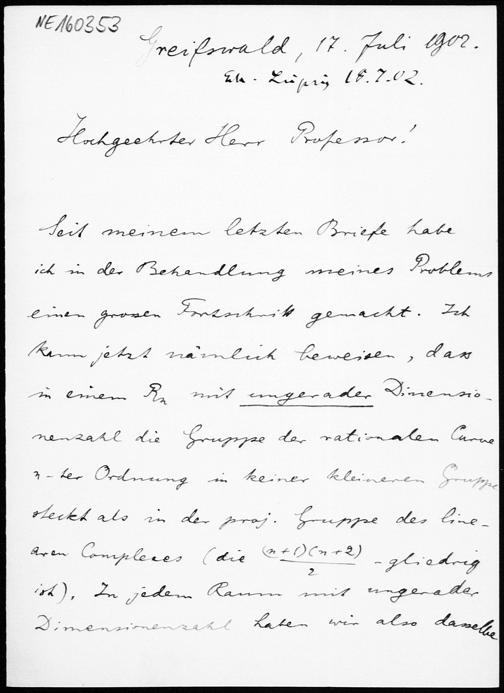 NE160353
Greifswald, 17. Juli 1902.
Leipzig 18.7.02.
Hochgeehrter Herr Professor!
Seit meinem letzten Briefe habe
ich in der Behandlung meines Problems
einen grossen Fortschritt gemacht. Ich
kann jetzt nämlich beweisen, dass
in einem Rn mit ungerader Dimensio-
nenzahl die Gruppe der rationalen Curve
n-ter Ordnung in keiner kleineren Gruppe
steckt als in der proj. Gruppe des line-
aren Complexes (die (n+1)(n+2)/2 -gliedrig
ist). In jedem Raum mit ungerader
Dimensionenzahl haben wir also dasselbe